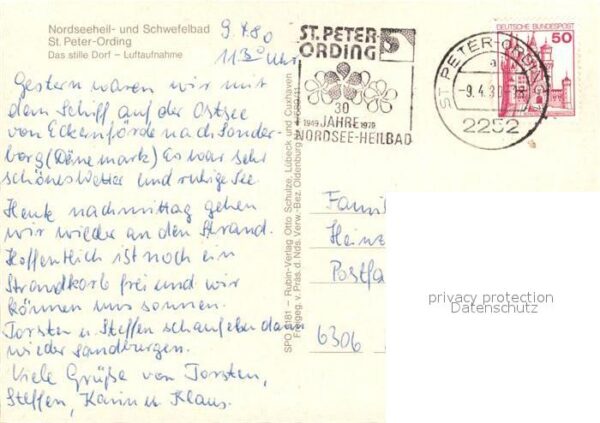 Nordseeheil- und Schwefelbad
St. Peter-Ording
Das stille Dorf - Luftaufnahme
9.4.80
11³⁰ Uhr
Gestern waren wir mit
dem Schiff auf der Ostsee
von Eckernförde nach Sonder-
borg (Dänemark) Es war sehr
schönes Wetter und ruhige See
Heute nachmittag gehen
wir wieder an den Strand.
Hoffentlich ist noch ein
Strandkorb frei und wir
können uns sonnen.
Torsten u Steffen schaufeln dann
wieder Sandburgen.
Viele Grüße von Torsten,
Steffen, Karin u Klaus.
SPO Rubin-Verlag Otto Schulze, Lübeck und Cuxhaven
Freigeg. v. Präs. d. Nds. Verw.-Bez. Oldenburg
ST. PETER
ORDING
30
1949 JAHRE 1979
NORDSEE-HEILBAD
ST. PETER-ORDING
a
-9.4.80
2252
DEUTSCHE BUNDESPOST
50
Famil
Heinz
Postfa
6306
privacy protection
Datenschutz